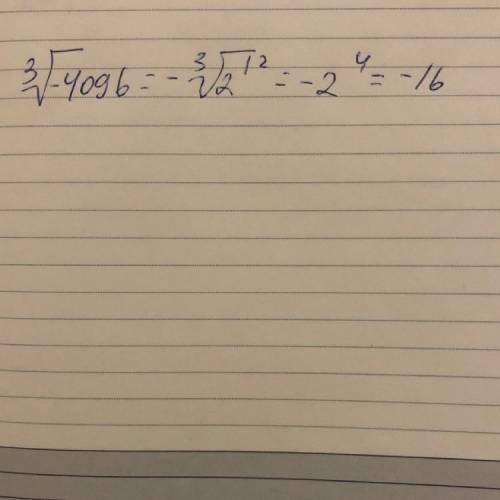 ∛-4096 = - ∛2¹² = -2⁴ = -16